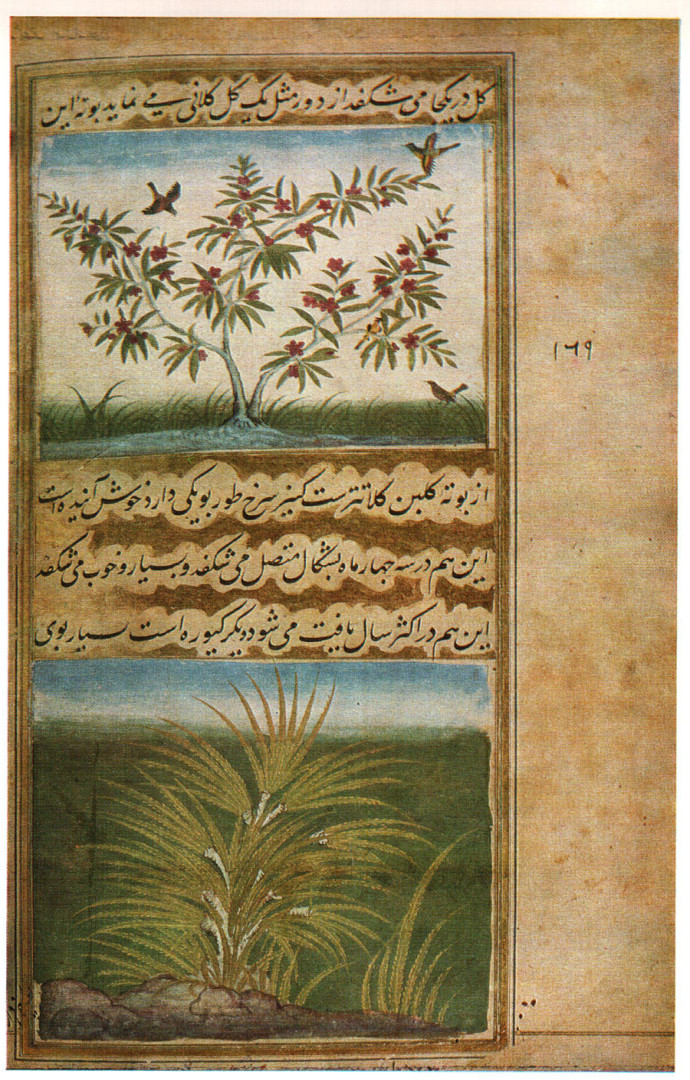 گل در یکجا می شکفد از دور مثل یک گل کلانی می نماید بوته این
۱۶۹
از بوته گلبن کلانترست کنیر سرخ طور بویکی دارد خوش آینده است
این هم در سه چهار ماه بشکال متصل می شکفد و بسیار و خوب می شکفد
این هم در اکثر سال یافت می شود دیگر کیوره است بسیار بوی